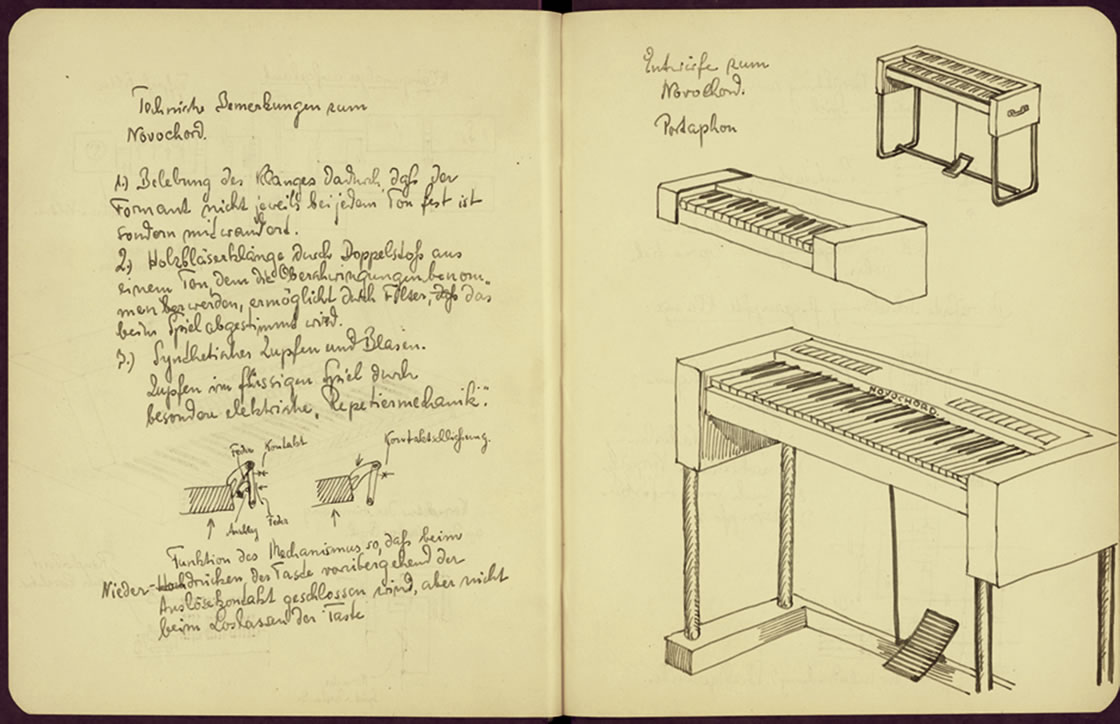 Technische Bemerkungen zum
Novochord.
1.) Belebung des Klanges dadurch, daß der
Formant nicht jeweils bei jedem Ton fest ist
sondern mitwandert.
2.) Holzbläserklänge durch Doppelstoß aus
einem Ton, dem die Oberschwingungen benom-
men werden, ermöglicht durch Filter, daß das
beim Spiel abgestimmt wird.
3.) Synthetisches Zupfen und Blasen.
Zupfen im flüssigen Spiel durch
besondere elektrische „Repetiermechanik".
Feder Kontakt
Kontaktschließung.
Anschlag Feder
Funktion des Mechanismus so, daß beim
Nieder-Hochdrücken der Taste vorübergehend der
Auslösekontakt geschlossen wird, aber nicht
beim Loslassen der Taste
Entwürfe zum
Novochord.
Portaphon
NOVOCHORD.